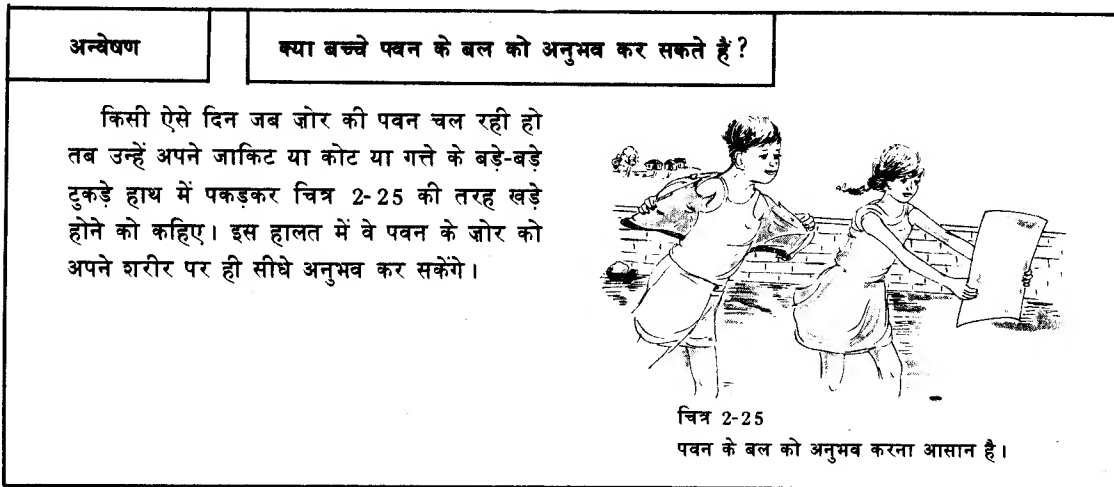 अन्वेषण
क्या बच्चे पवन के बल को अनुभव कर सकते हैं?
किसी ऐसे दिन जब ज़ोर की पवन चल रही हो
तब उन्हें अपने जाकिट या कोट या गत्ते के बड़े-बड़े
टुकड़े हाथ में पकड़कर चित्र 2-25 की तरह खड़े
होने को कहिए। इस हालत में वे पवन के ज़ोर को
अपने शरीर पर ही सीधे अनुभव कर सकेंगे।
चित्र 2-25
पवन के बल को अनुभव करना आसान है।